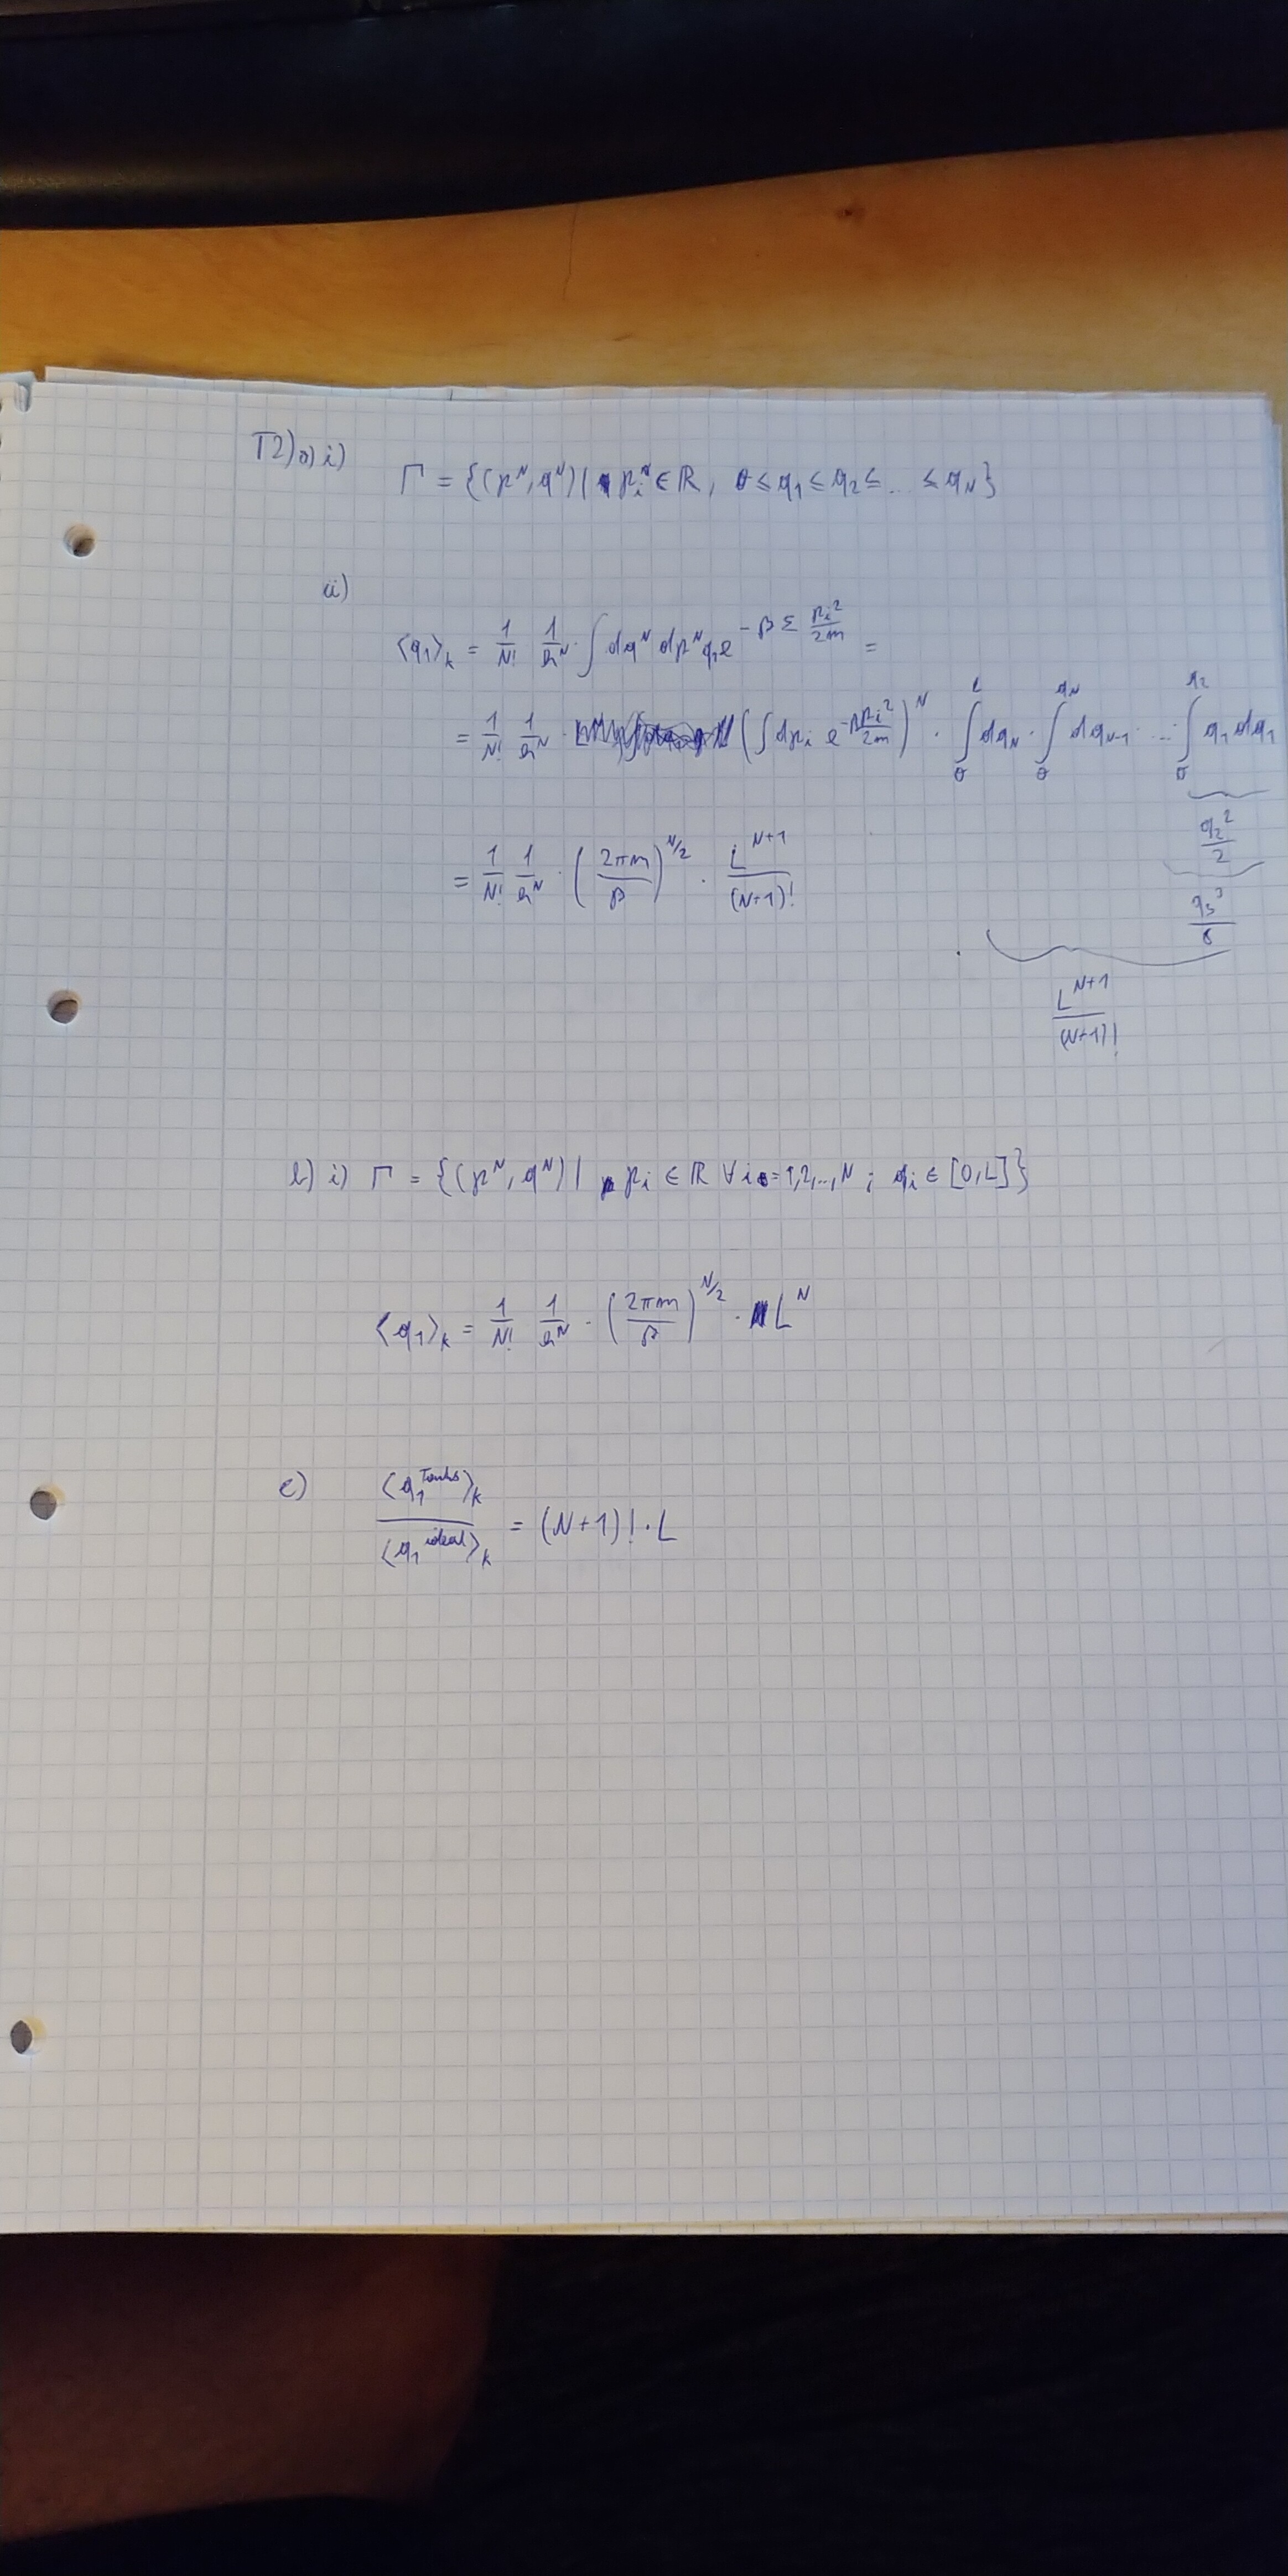 T2) a) i) Γ = {(p^N, q^N) | p_i^N ∈ ℝ, 0 ≤ q_1 ≤ q_2 ≤ ... ≤ q_N}
ii)
⟨q_1⟩_k = 1/N! 1/h^N · ∫ dq^N dp^N q_1 e^{-β Σ p_i^2/2m} =
= 1/N! 1/h^N · (∫ dp_i e^{-β p_i^2/2m})^N · ∫_0^L dq_N · ∫_0^{q_N} dq_{N-1} · ... · ∫_0^{q_2} q_1 dq_1
q_2^2/2
= 1/N! 1/h^N · (2πm/β)^{N/2} · L^{N+1}/(N+1)!
q_3^3/6
L^{N+1}/(N+1)!
b) i) Γ = {(p^N, q^N) | p_i ∈ ℝ ∀ i = 1,2,...,N ; q_i ∈ [0,L]}
⟨q_1⟩_k = 1/N! 1/h^N · (2πm/β)^{N/2} · L^N
c) ⟨q_1^{Tonks}⟩_k / ⟨q_1^{ideal}⟩_k = (N+1)! · L